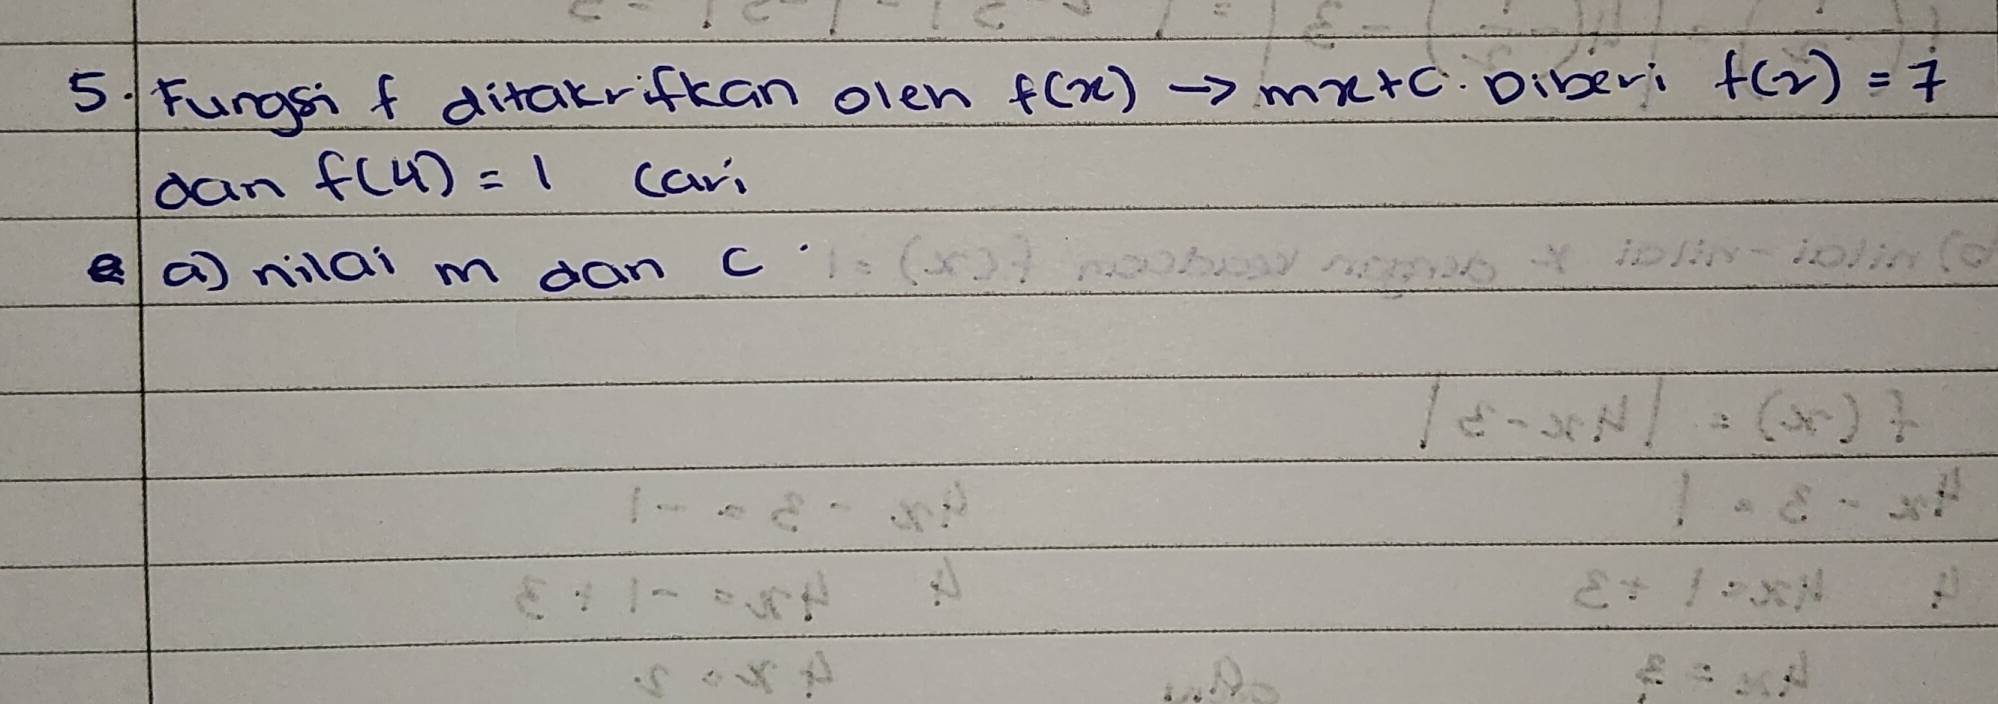 5. Fungsi f ditakrifkan oleh f(x) → mx+c. Diberi f(2) = 7
dan f(4) = 1 cari
a) nilai m dan c